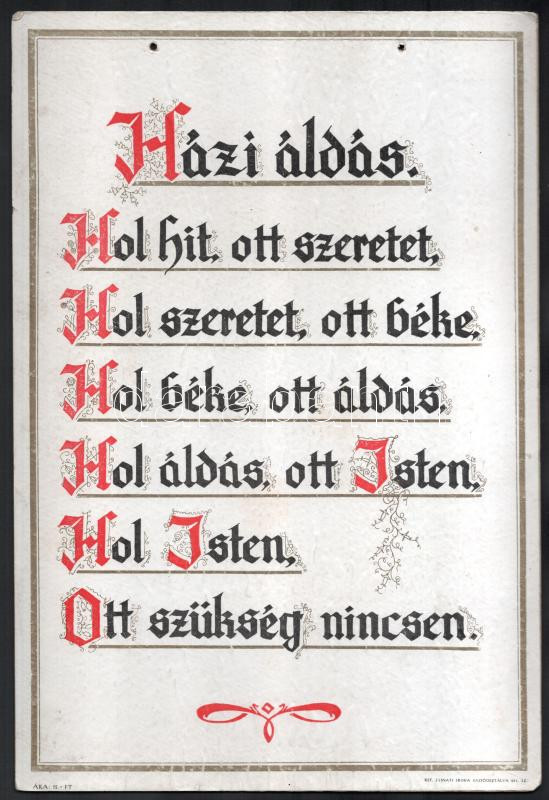 Házi áldás.
Hol hit, ott szeretet,
Hol szeretet, ott béke,
Hol béke, ott áldás,
Hol áldás, ott Isten,
Hol Isten,
Ott szükség nincsen.
ÁRA: 15.- FT